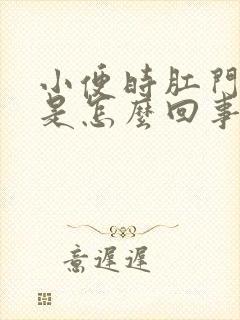 小便時肛門
是怎麼回事
意遲遲